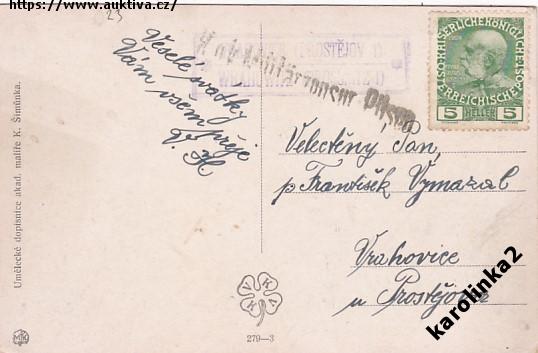 https://www.auktiva.cz/
23
Veselé svátky
Vám všem přeje
V. H
(PROSTĚJOV 1)
K.u.k. Militärzensur Pilsen
KAISERLICHE KÖNIGLICHE
ÖSTERREICHISCHE POST
5 HELLER 5
Velectěný Pan,
p František Vymazal
Vrahovice
u Prostějova
Umělecké dopisnice akad. malíře K. Šimůnka.
V K V K
279—3
MK
karolinka2